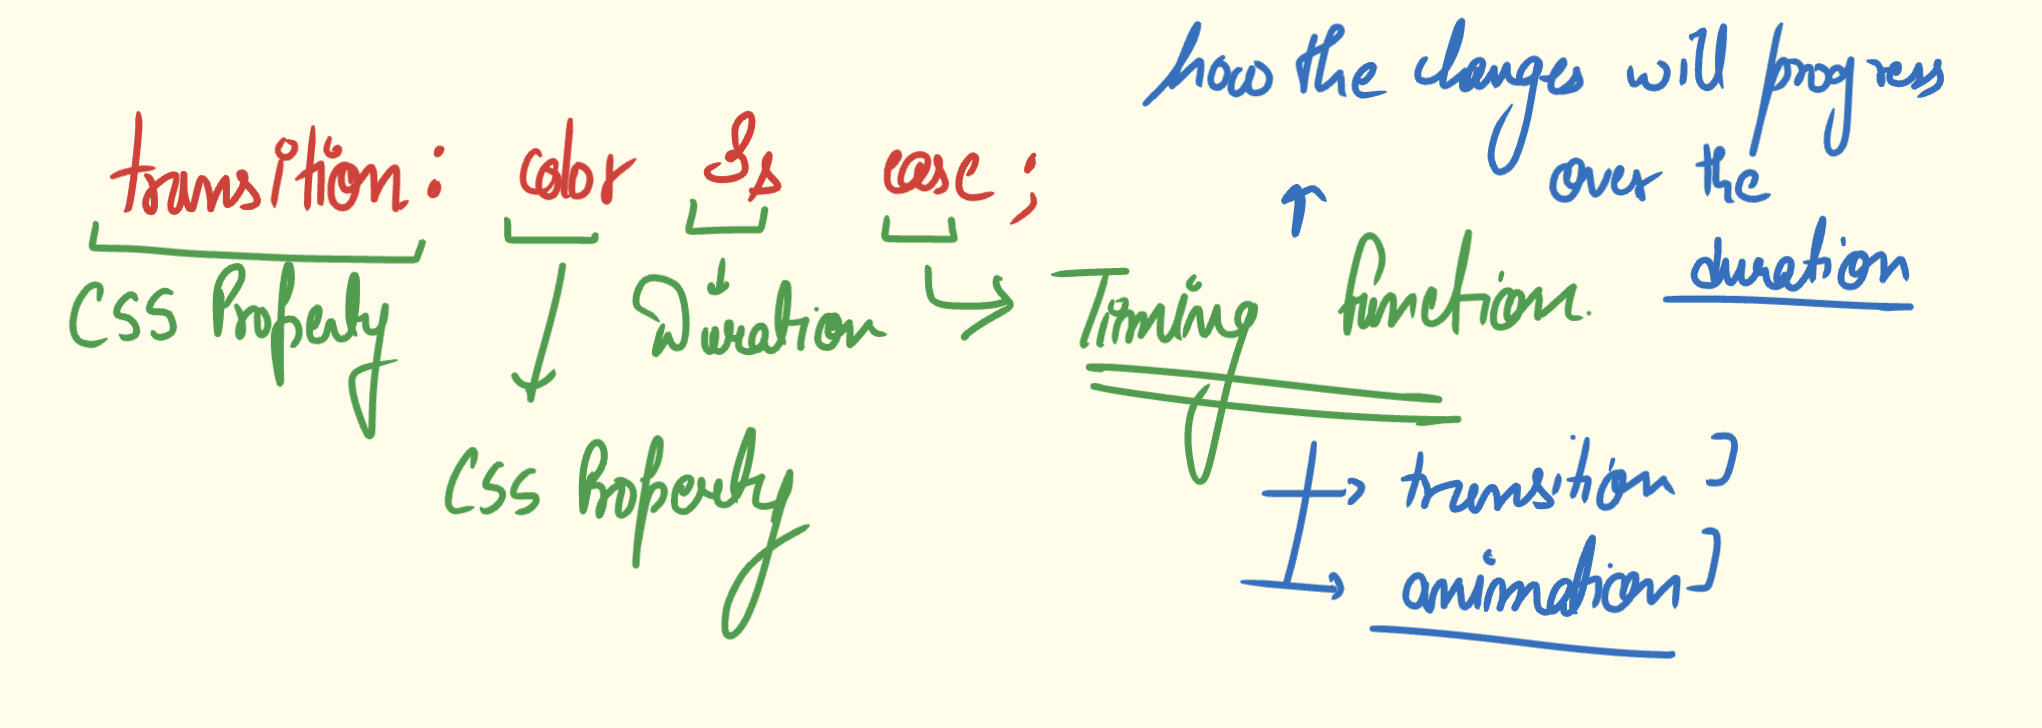 how the changes will progress
over the
duration
transition: color 3s ease;
CSS Property
Duration
Timing function.
CSS Property
transition
animation